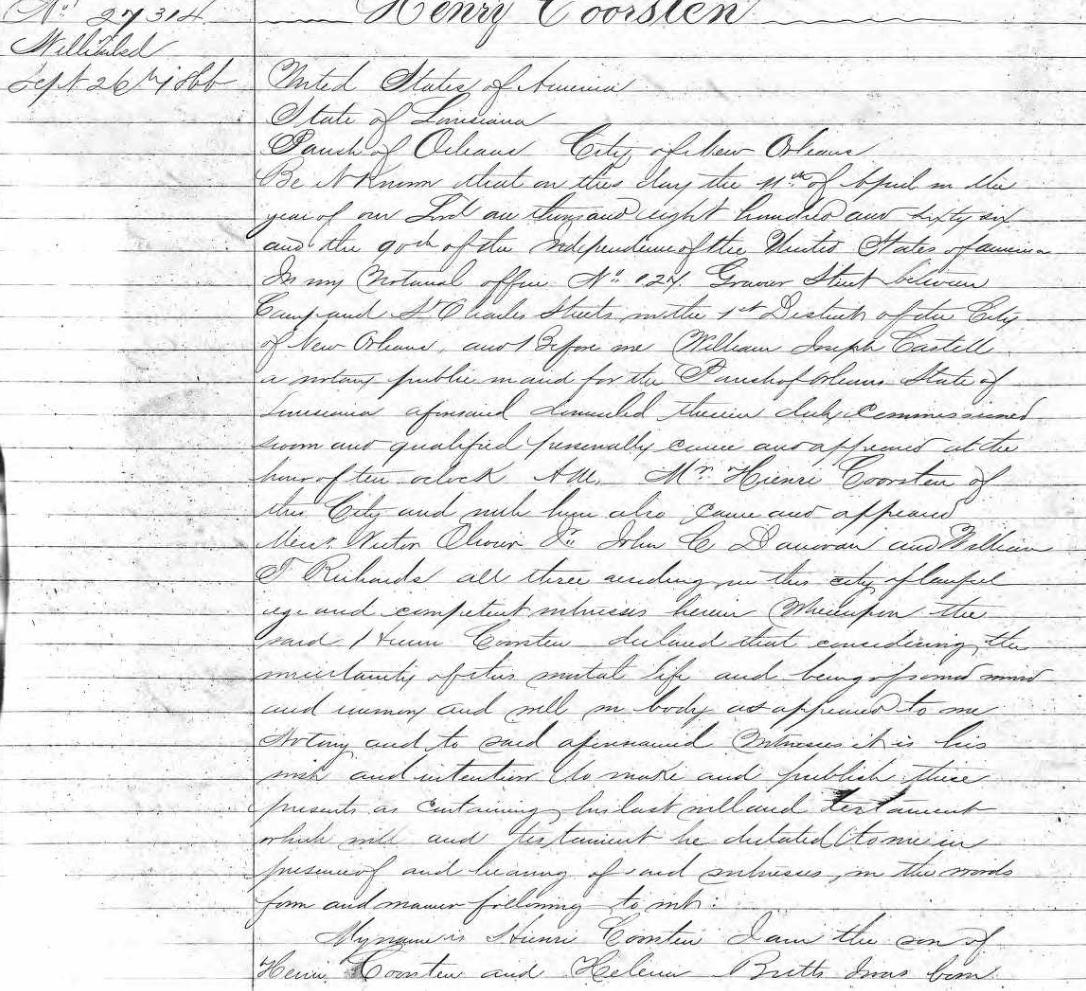 No 27314
Henry Coorsten
Will filed
Sept 26th 1866
United States of America
State of Louisiana
Parish of Orleans City of New Orleans
Be it Known that on this day the 11th of April in the
year of our Lord one thousand eight hundred and sixty six
and the 90th of the Independence of the United States of America
In my Notarial office No 124 Gravier Street between
Camp and St Charles Streets in the 1st District of the City
of New Orleans, and Before me William Joseph Castell
a notary public in and for the Parish of Orleans State of
Louisiana aforesaid therein duly Commissioned
sworn and qualified personally came and appeared at the
hour of ten oclock AM. Mr Henri Coorsten of
this City and with him also came and appeared
Messrs Victor John C Donovan and William
T Richards all three residing in this city of lawful
age and competent witnesses herein Whereupon the
said Henri Coorsten declared that considering the
uncertainty of this mortal life and being of sound mind
and memory and well in body as appeared to me
Notary and to said aforenamed Witnesses it is his
wish and intention to make and publish these
presents as containing his last will and testament
which will and testament he dictated to me in
presence of and hearing of said witnesses, in the words
form and manner following to wit:
My name is Henri Coorsten I am the son of
Henri Coorsten and Helena Butts I was born